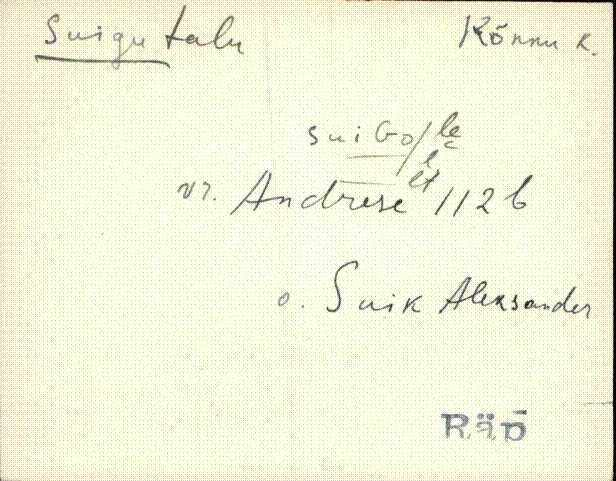 Suigu talu Kõnnu k.
suiGo/le
l
lt
vr. Andrese 112 b
o. Suik Aleksander
Räp